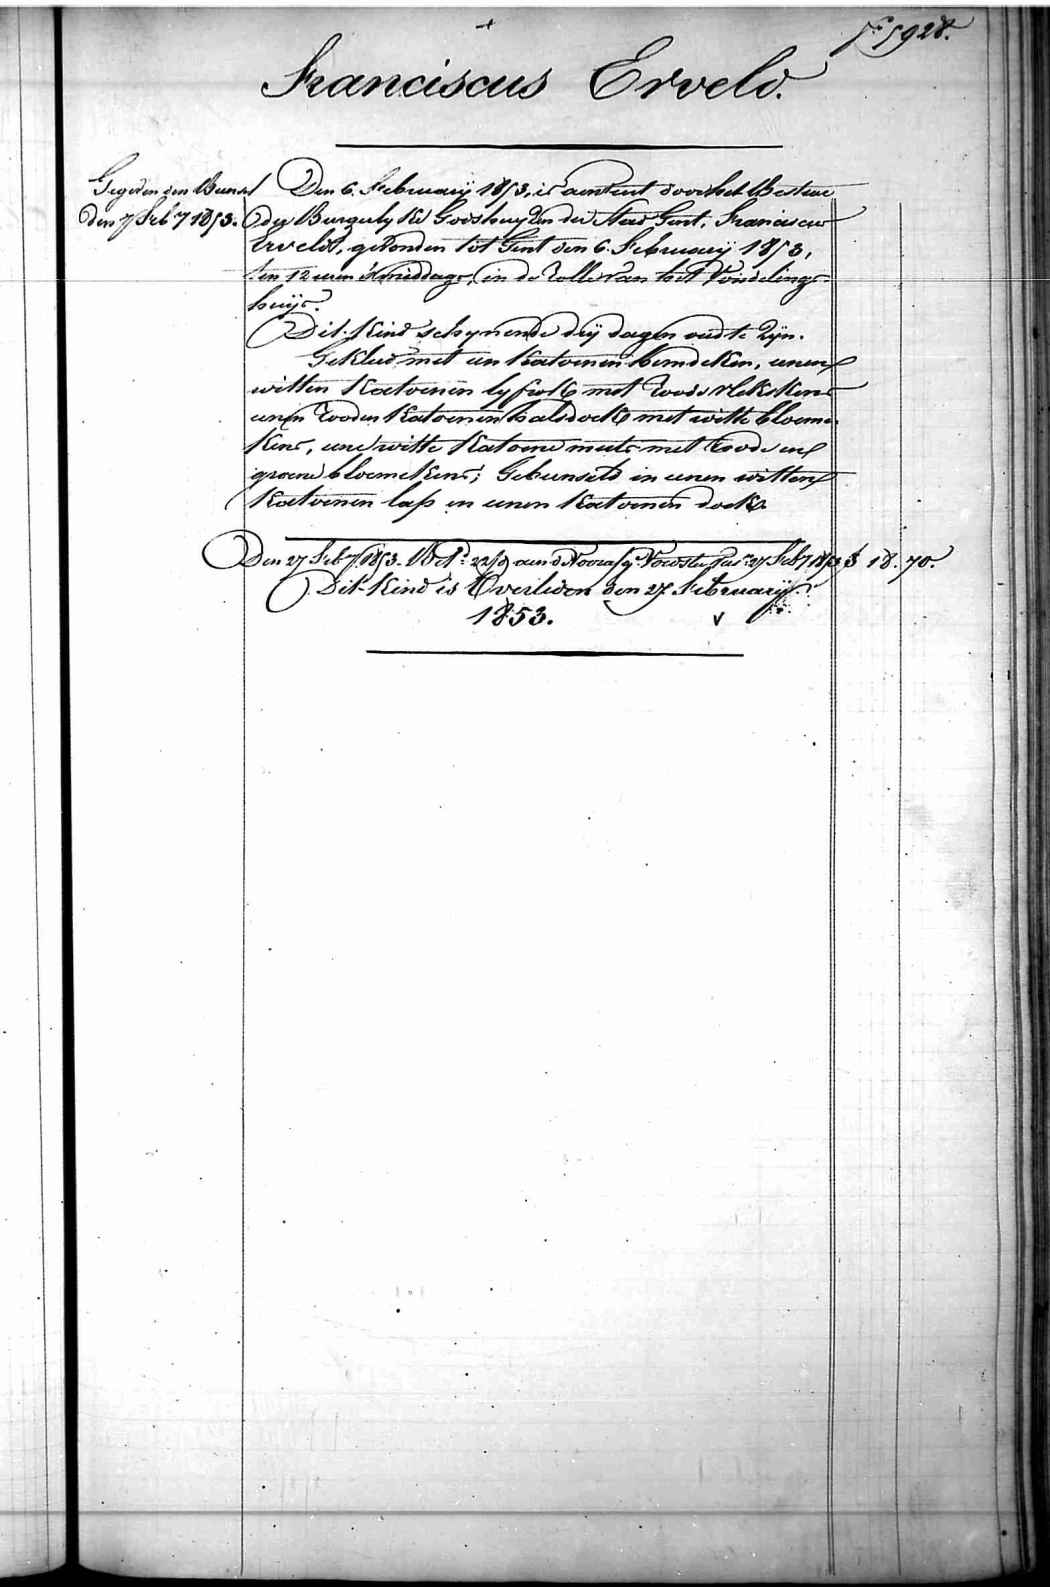 fº 5928.
Franciscus Erveld.
Gegeven den Bunsel
den 7 Feb.ry 1853.
Den 6. February 1853, is aenveird door het Bestuer
der Burgerlyke Godshuyzen der Stad Gent, Franciscus
Erveld, gevonden tot Gent den 6. February 1853,
ten 12 uren 's middags, in de Rolle van het Vondelings-
huijs.
Dit Kind schynende drij dagen oud te zyn.
Gekleed met een Katoenen hemdeken, eenen
witten Katoenen lyfrok met roode vlekskens
eenen rooden Katoenen halsdoek met witte bloeme-
kens, eene witte Katoene muts met roode en
groene bloemekens; Gebunseld in eenen witten
Katoenen lap en eenen Katoenen doek.
Den 27 Feb.ry 1853. Bet. aen 27 Feb.ry 1853 18. 70.
Dit Kind is Overleden den 27 February
1853.